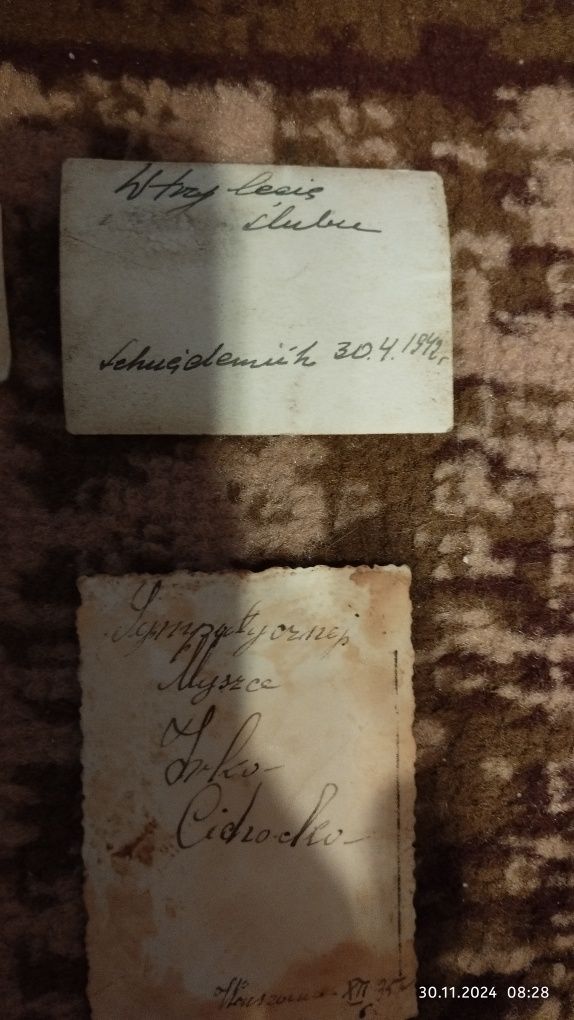 W trzy lecie
ślubu
Schneidemühl 30.4.1942r.
Sympatycznej
Myszce
Irka
Cichocka
Warszawa XII 35
6
30.11.2024 08:28